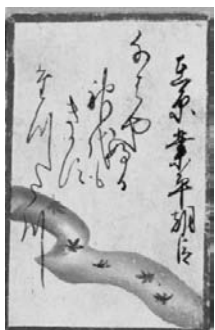 在原業平朝臣
ちはやふる
神代も
きかす
たつた川